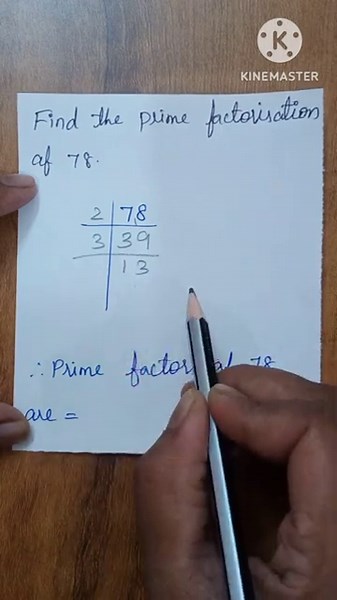 KINEMASTER
Find the prime factorisation
of 78.
2 78
3 39
13
∴ Prime factors of 78
are =